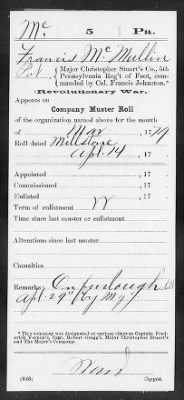 Mc 5 Pa.
Francis McMullin
Pvt, Major Christopher Stuart's Co., 5th
Pennsylvania Reg't of Foot, commanded
by Col. Francis Johnston.*
Revolutionary War.
Appears on
Company Muster Roll
of the organization named above for the month
of Mar, 1779
Roll dated Millstone
Apl. 14, 177
Appointed, 17
Commissioned, 17
Enlisted, 17
Term of enlistment W
Time since last muster or enlistment
Alterations since last muster
Casualties
Remarks: On furlough till
Apl. 29" by
*This company was designated at various times as Captain
Vernon's, Capt. Robert Gregg's, Major Christopher Stuart's
and The Major's Company.
Ward
(545) Copyist.